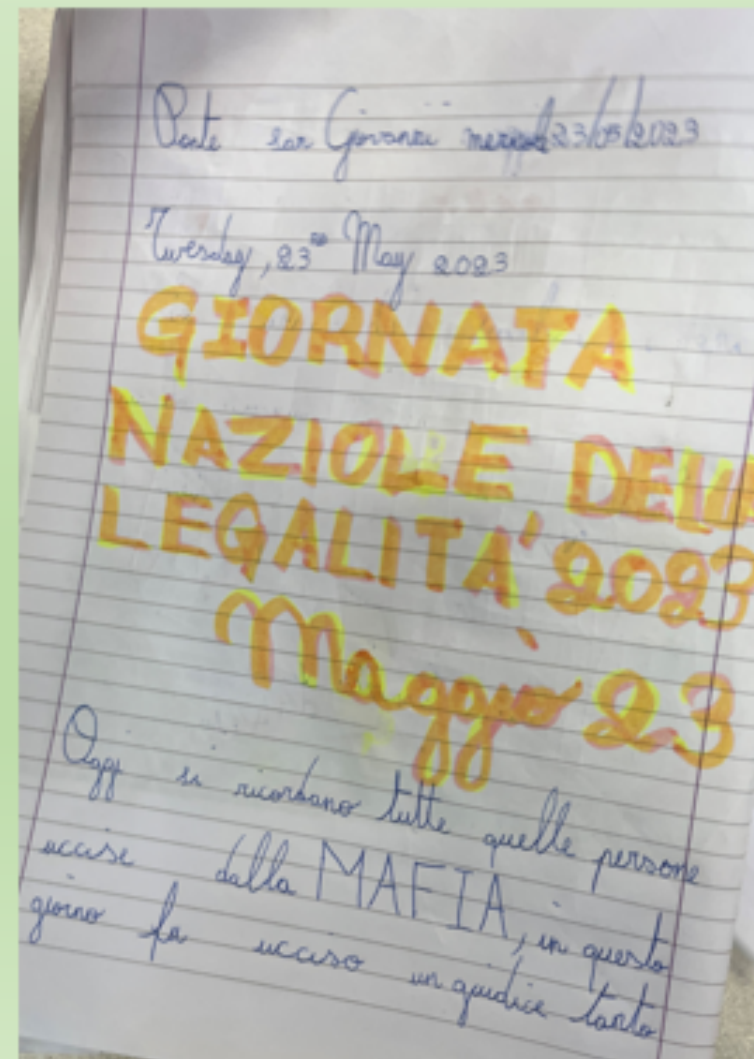 Ponte san Giovanni 23/05/2023
Tuesday, 23rd May 2023
GIORNATA
NAZIOLE DELL
LEGALITA' 2023
Maggio 23
Oggi si ricordano tutte quelle persone
uccise dalla MAFIA, in questo
giorno fu ucciso un giudice tanto